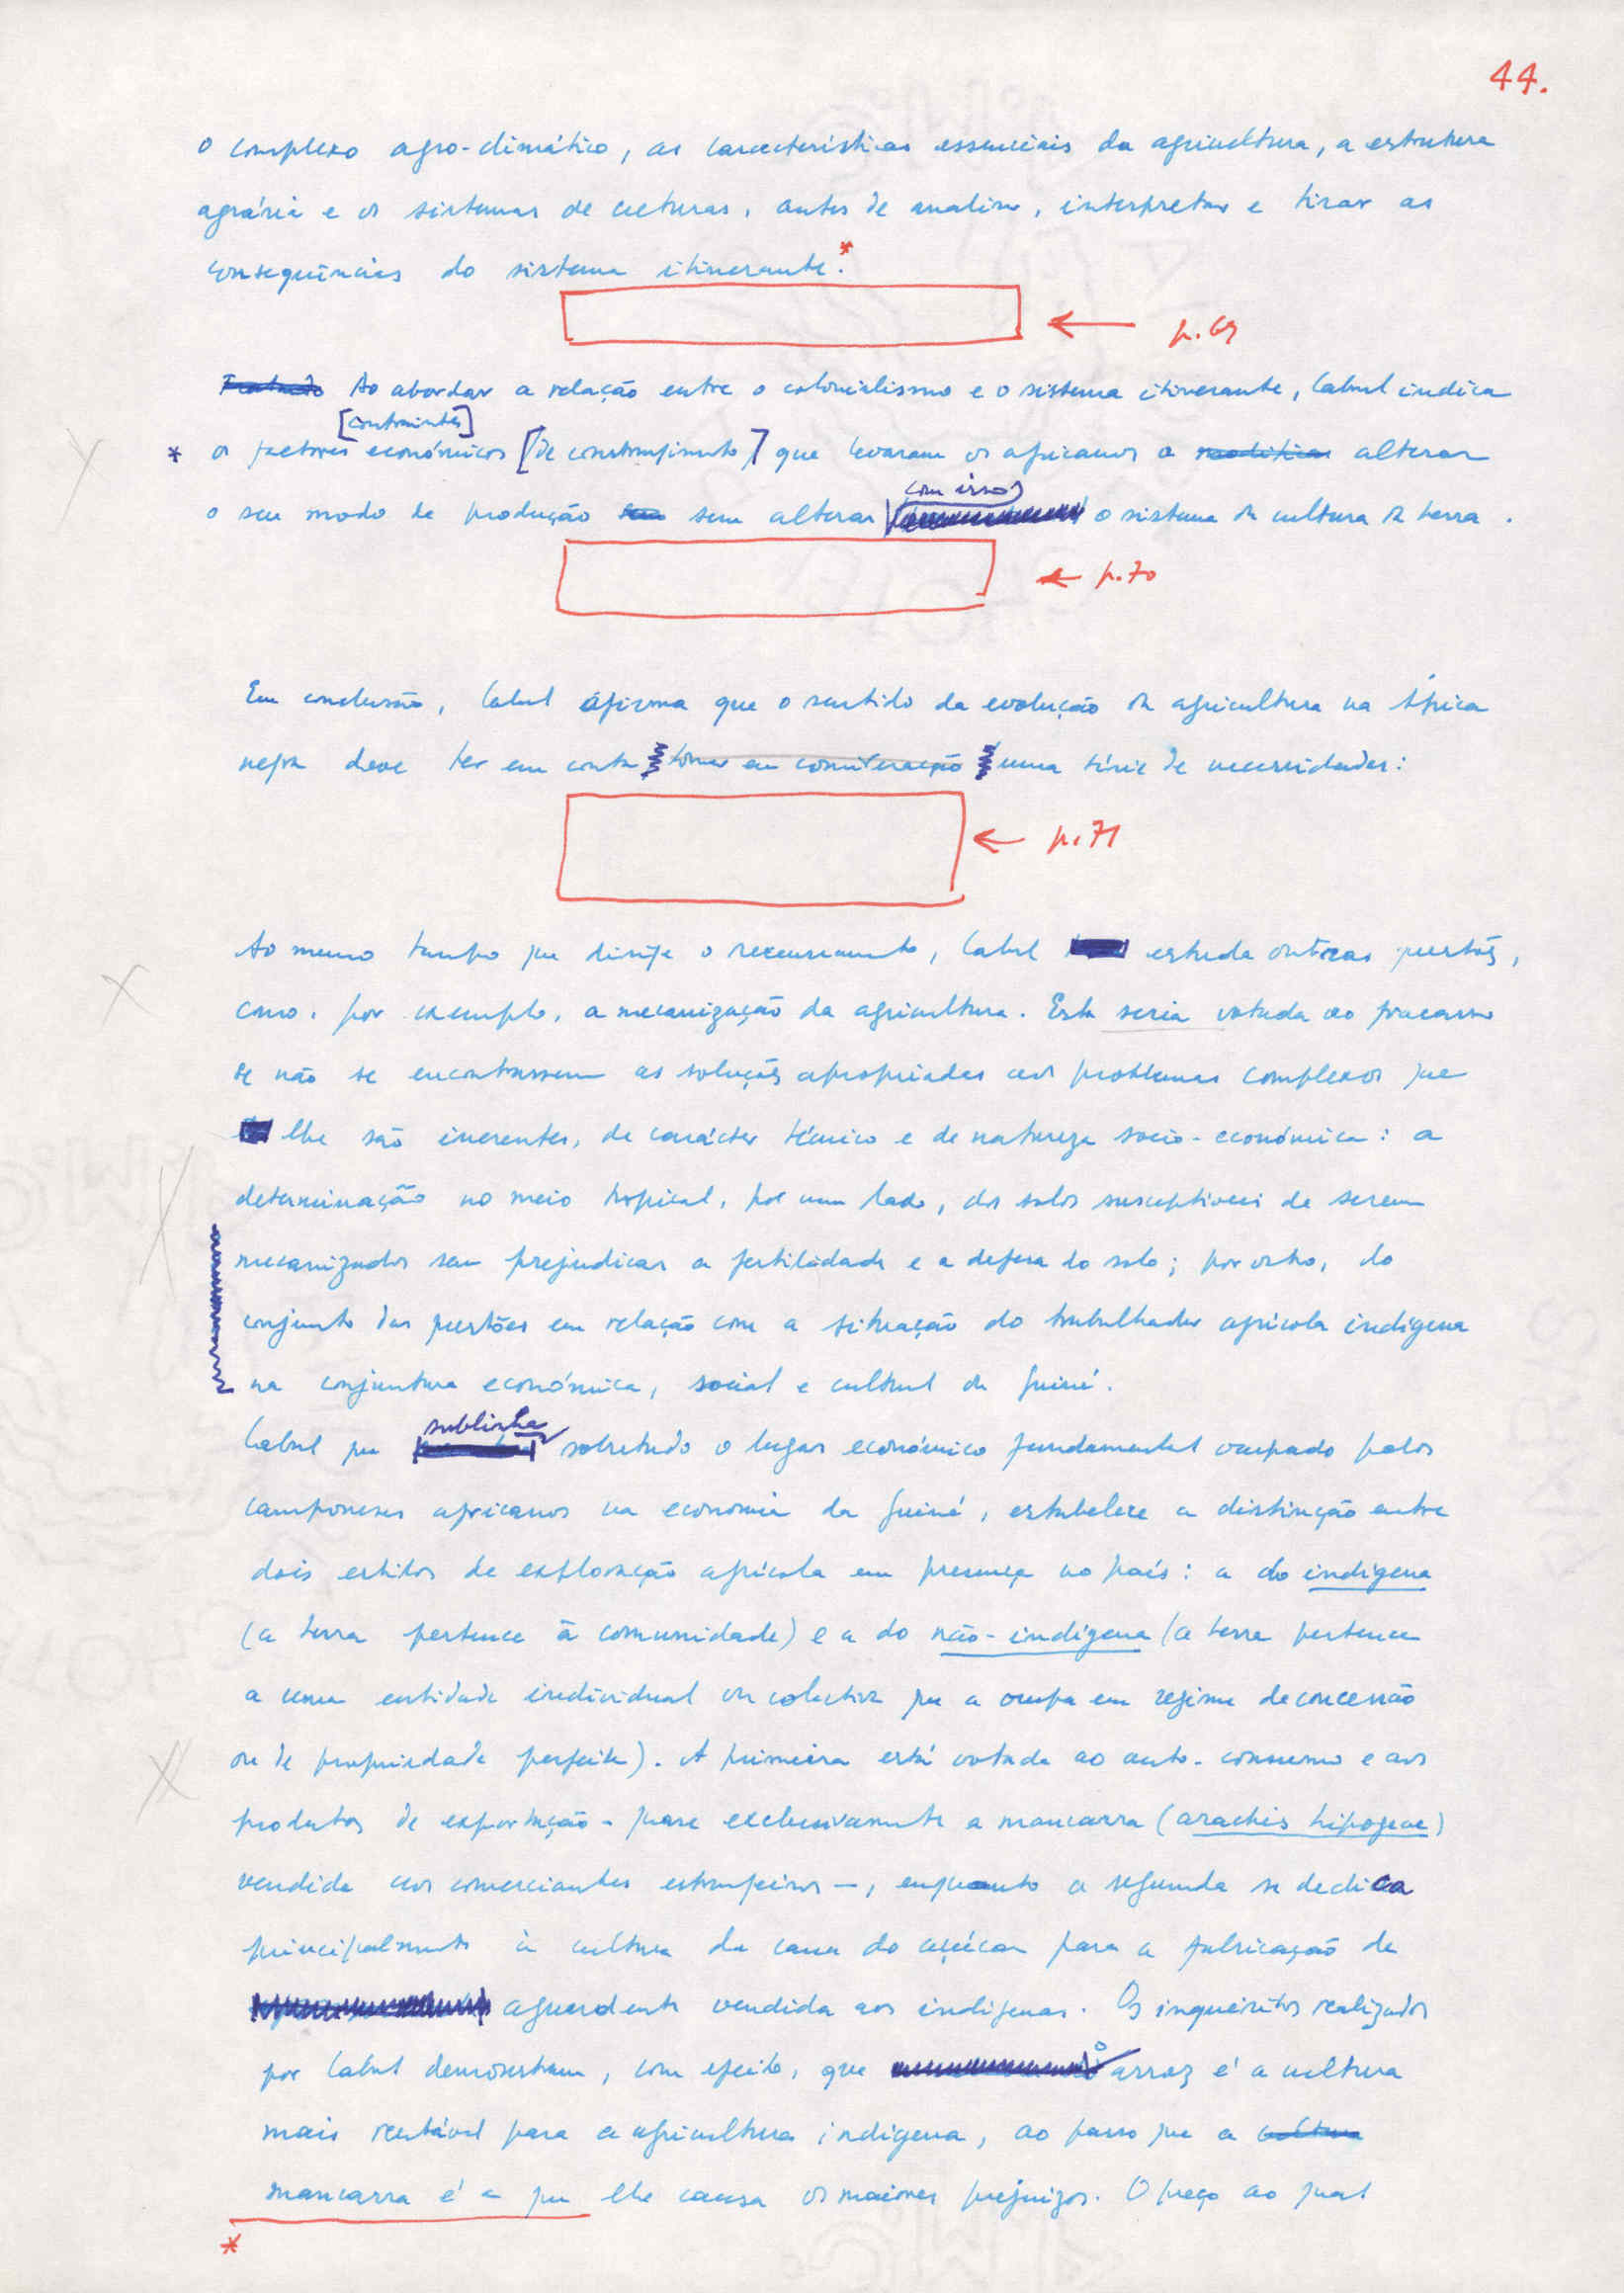 44.
o complexo agro-climático, as características essenciais da agricultura, a estrutura
agrária e os sistemas de culturas, antes de analisar, interpretar e tirar as
consequências do sistema itinerante.*
← p. 69
Tratando Ao abordar a relação entre o colonialismo e o sistema itinerante, Cabral indica
[constraintes]
* os factores económicos [de constrangimento] que levaram os africanos a modificar alterar
o seu modo de produção sem alterar o sistema da cultura da terra.
com isso
← p. 70
Em conclusão, Cabral afirma que o sentido da evolução da agricultura na África
negra deve ter em conta tomar em consideração uma série de necessidades:
← p. 71
Ao mesmo tempo que dirige o recenseamento, Cabral estuda outras questões,
como, por exemplo, a mecanização da agricultura. Esta seria votada ao fracasso
se não se encontrassem as soluções apropriadas aos problemas complexos que
lhe são inerentes, de carácter técnico e de natureza socio-económica: a
determinação no meio tropical, por um lado, dos solos susceptíveis de serem
mecanizados sem prejudicar a fertilidade e a defesa do solo; por outro, do
conjunto das questões em relação com a situação do trabalhador agrícola indígena
na conjuntura económica, social e cultural da Guiné.
sublinha
Cabral que sobretudo o lugar económico fundamental ocupado pelos
camponeses africanos na economia da Guiné, estabelece a distinção entre
dois estilos de exploração agrícola em presença no país: a do indígena
(a terra pertence à comunidade) e a do não-indígena (a terra pertence
a uma entidade individual ou colectiva que a ocupa em regime de concessão
ou de propriedade perfeita). A primeira está votada ao auto-consumo e aos
produtos de exportação - quase exclusivamente a mancarra (arachis hipogeae)
vendida aos comerciantes estrangeiros -, enquanto a segunda se dedica
principalmente à cultura da cana do açúcar para a fabricação de
aguardente vendida aos indígenas. Os inquéritos realizados
por Cabral demonstram, com efeito, que o arroz é a cultura
mais rentável para a agricultura indígena, ao passo que a cultura
mancarra é a que lhe causa os maiores prejuízos. O preço ao qual
*